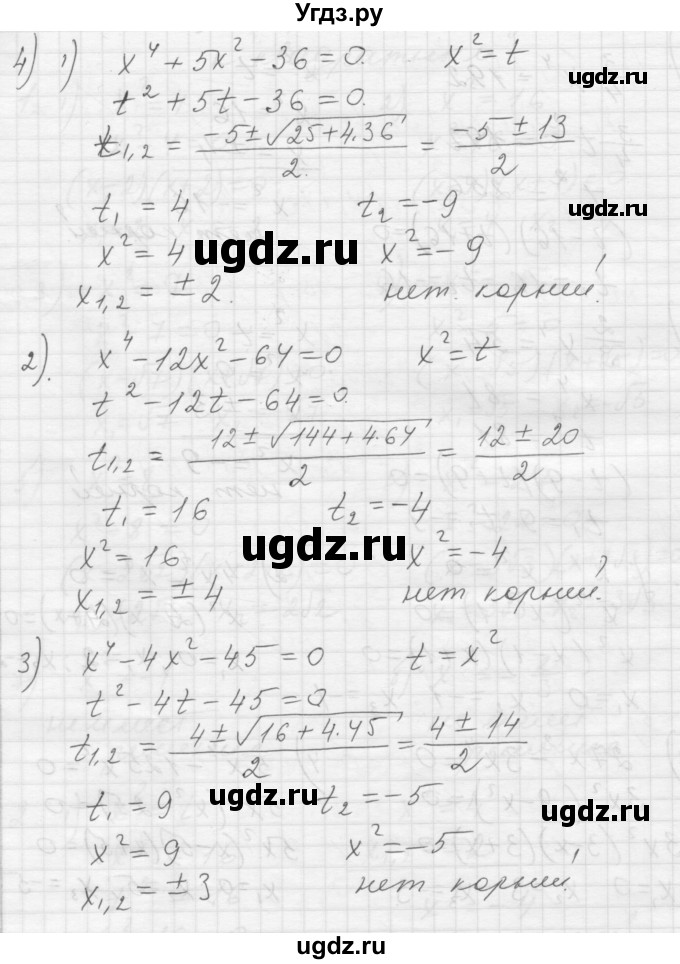 Угдз.ру
4) 1) x⁴ + 5x² - 36 = 0. x² = t
ugdz.ru
t² + 5t - 36 = 0.
t₁,₂ = (-5 ± √(25 + 4·36))/2. = (-5 ± 13)/2
t₁ = 4 t₂ = -9
ugdz.ru
x² = 4 x² = -9
ugdz.ru
x₁,₂ = ± 2. нет. корний.
2). x⁴ - 12x² - 64 = 0 x² = t
t² - 12t - 64 = 0.
t₁,₂ = (12 ± √(144 + 4·64))/2 = (12 ± 20)/2
t₁ = 16 t₂ = -4
x² = 16 x² = -4
ugdz.ru
x₁,₂ = ± 4 нет корний.
3) x⁴ - 4x² - 45 = 0 t = x²
t² - 4t - 45 = 0
t₁,₂ = (4 ± √(16 + 4·45))/2 = (4 ± 14)/2
t₁ = 9 t₂ = -5
ugdz.ru
ugdz.ru
x² = 9 x² = -5
x₁,₂ = ± 3 нет корний.
ugdz.ru